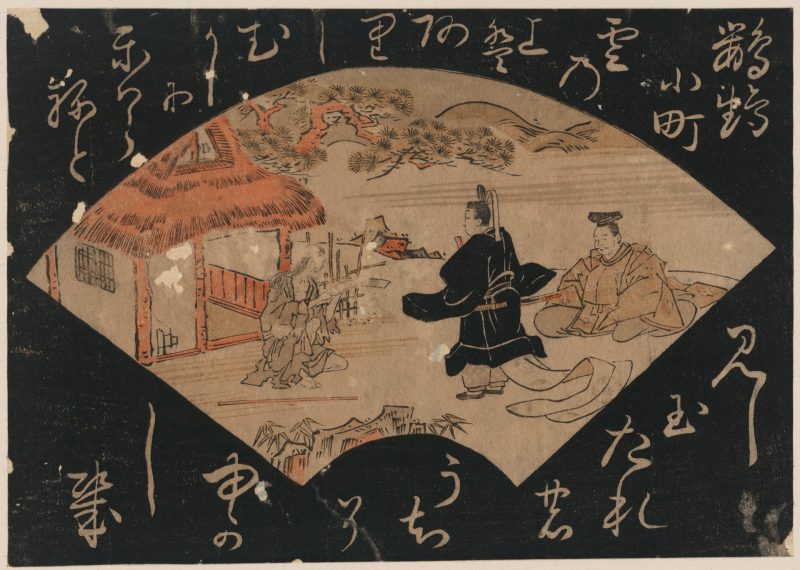 鸚鵡
小町
雲の
上は
あ
り
し
む
かし
に
かはら
ねと
見し
玉
たれ
の
うち
や
ゆか
し
き